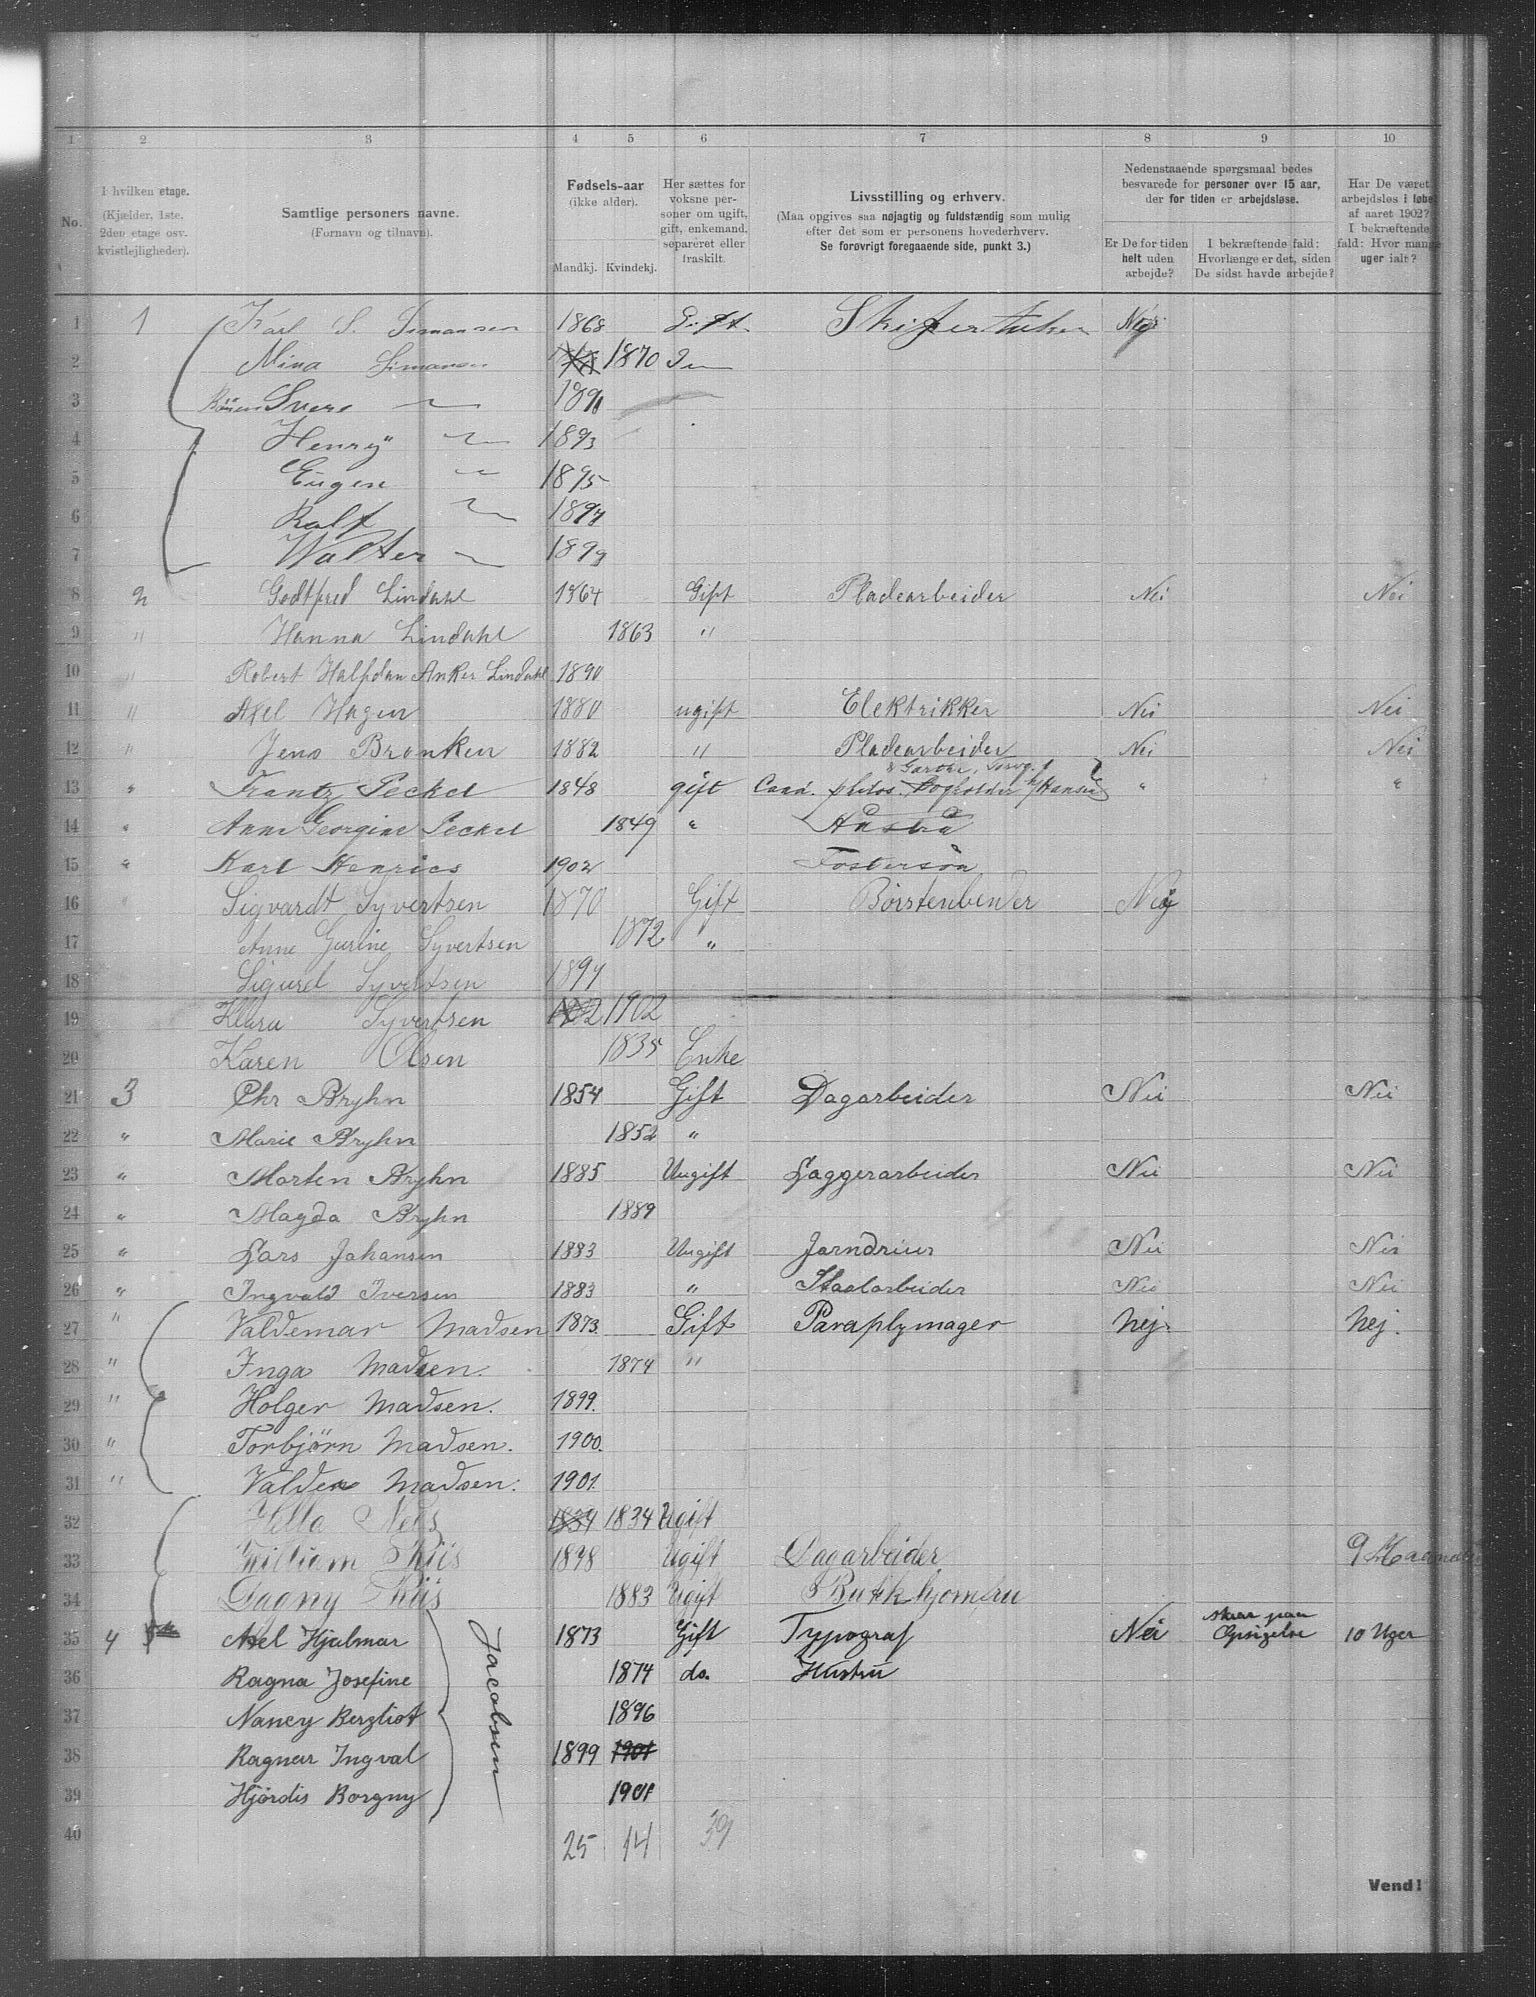 1 2 3 4 5 6 7 8 9 10
No.
I hvilken etage.
(Kjælder, 1ste,
2den etage osv.
kvistlejligheder).
Samtlige personers navne.
(Fornavn og tilnavn).
Fødsels-aar
(ikke alder).
Mandkj. Kvindekj.
Her sættes for
voksne per-
soner om ugift,
gift, enkemand,
separeret eller
fraskilt.
Livsstilling og erhverv.
(Maa opgives saa nøjagtig og fuldstændig som mulig
efter det som er personens hovederhverv.
Se forøvrigt foregaaende side, punkt 3.)
Nedenstaaende spørgsmaal bedes
besvarede for personer over 15 aar,
der for tiden er arbejdsløse.
Er De for tiden
helt uden
arbejde?
I bekræftende fald:
Hvorlænge er det, siden
De sidst havde arbejde?
Har De været
arbejdsløs i løbet
af aaret 1902?
I bekræftende
fald: Hvor mange
uger ialt?
1 1 Karl S. Simansen 1868 Gift Nej
2 Mina Simansen 1870
3 Børen 1890
4 Henry " 1893
5 Eugen " 1895
6 Ralf " 1897
7 Walter " 1899
8 2 Godtfred Lindahl 1864 Gift Pladearbeider Nei Nei
9 " Hanna Lindahl 1863 "
10 " Robert Halfdan Anker Lindahl 1890
11 " Axel Hagen 1880 ugift Elektrikker Nei Nei
12 " Jens Bronken 1882 " Pladearbeider Nei Nei
13 " Frantz Peckel 1848 gift Cand. philos. Bogholder Hansen " "
14 " Anne Georgine Peckel 1849 " Hustru
15 " Karl Henrics 1902 Fostersøn
16 " Sigvardt Syvertsen 1870 Gift Børstenbinder Nej
17 Anne Gurine Syvertsen 1872 "
18 Sigurd Syvertsen 1897
19 Klara Syvertsen 1902 1902
20 Karen Olsen 1835 Enke
21 3 Chr Bryhn 1854 Gift Dagarbeider Nei Nei
22 " Marie Bryhn 1852 "
23 " Morten Bryhn 1885 Ungift Laggerarbeider Nei Nei
24 " Magda Bryhn 1889
25 " Lars Johansen 1883 Ungift Jarndrier Nei Nei
26 " Ingvald Iversen 1883 " Staalarbeider Nei Nei
27 " Valdemar Madsen 1873 Gift Paraplymager Nej. Nej.
28 " Inga Madsen. 1874 "
29 " Holger Madsen. 1899.
30 " Torbjørn Madsen. 1900.
31 " Valder Madsen. 1901.
32 1834 1834 Ugift
33 William Thiis 1878 Ugift Dagarbeider 9 Maaneder
34 Dagny Thiis 1883 Ugift
35 4 Axel Hjalmar Jacobsen 1873 Gift Typograf Nei staar paa Opsigelse 10 Uger
36 Ragna Josefine 1874 do. Hustru
37 Nancy Bergliot 1896
38 Ragnar Ingval 1899 1901
39 Hjördis Borgny 1901
40 25 14 39
Vend!